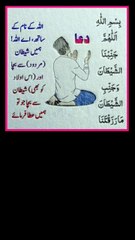 بِسْمِ اللّٰهِ
اَللّٰهُمَّ
جَنِّبْنَا
الشَّيْطَانَ
وَجَنِّبِ
الشَّيْطَانَ
مَا رَزَقْتَنَا
دعا
اللہ کے نام کے
ساتھ، اے اللہ!
ہمیں شیطان
(مردود) سے بچا
اور (اس اولاد
کو بھی) شیطان
سے بچا جو تو
ہمیں عطا فرمائے